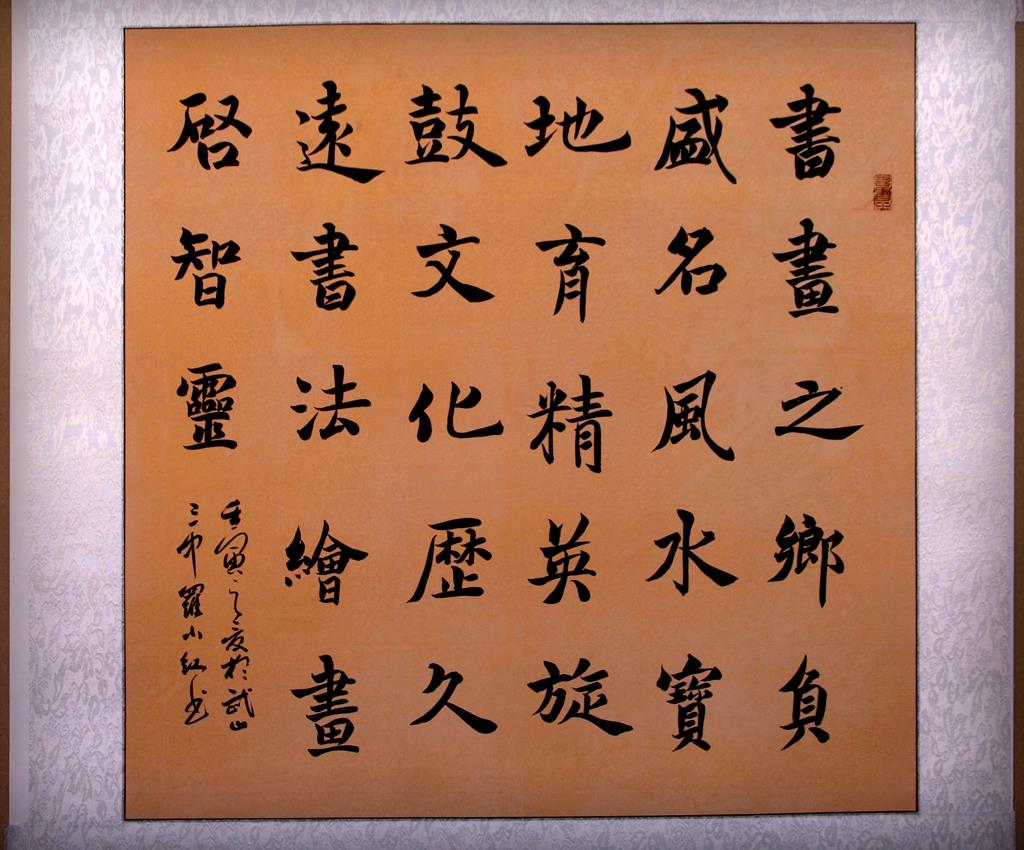 書畫之鄉負
盛名風水寶
地育精英旋
鼓文化歷久
遠書法繪畫
啓智靈
壬寅之夏於武山
三中羅小紅书